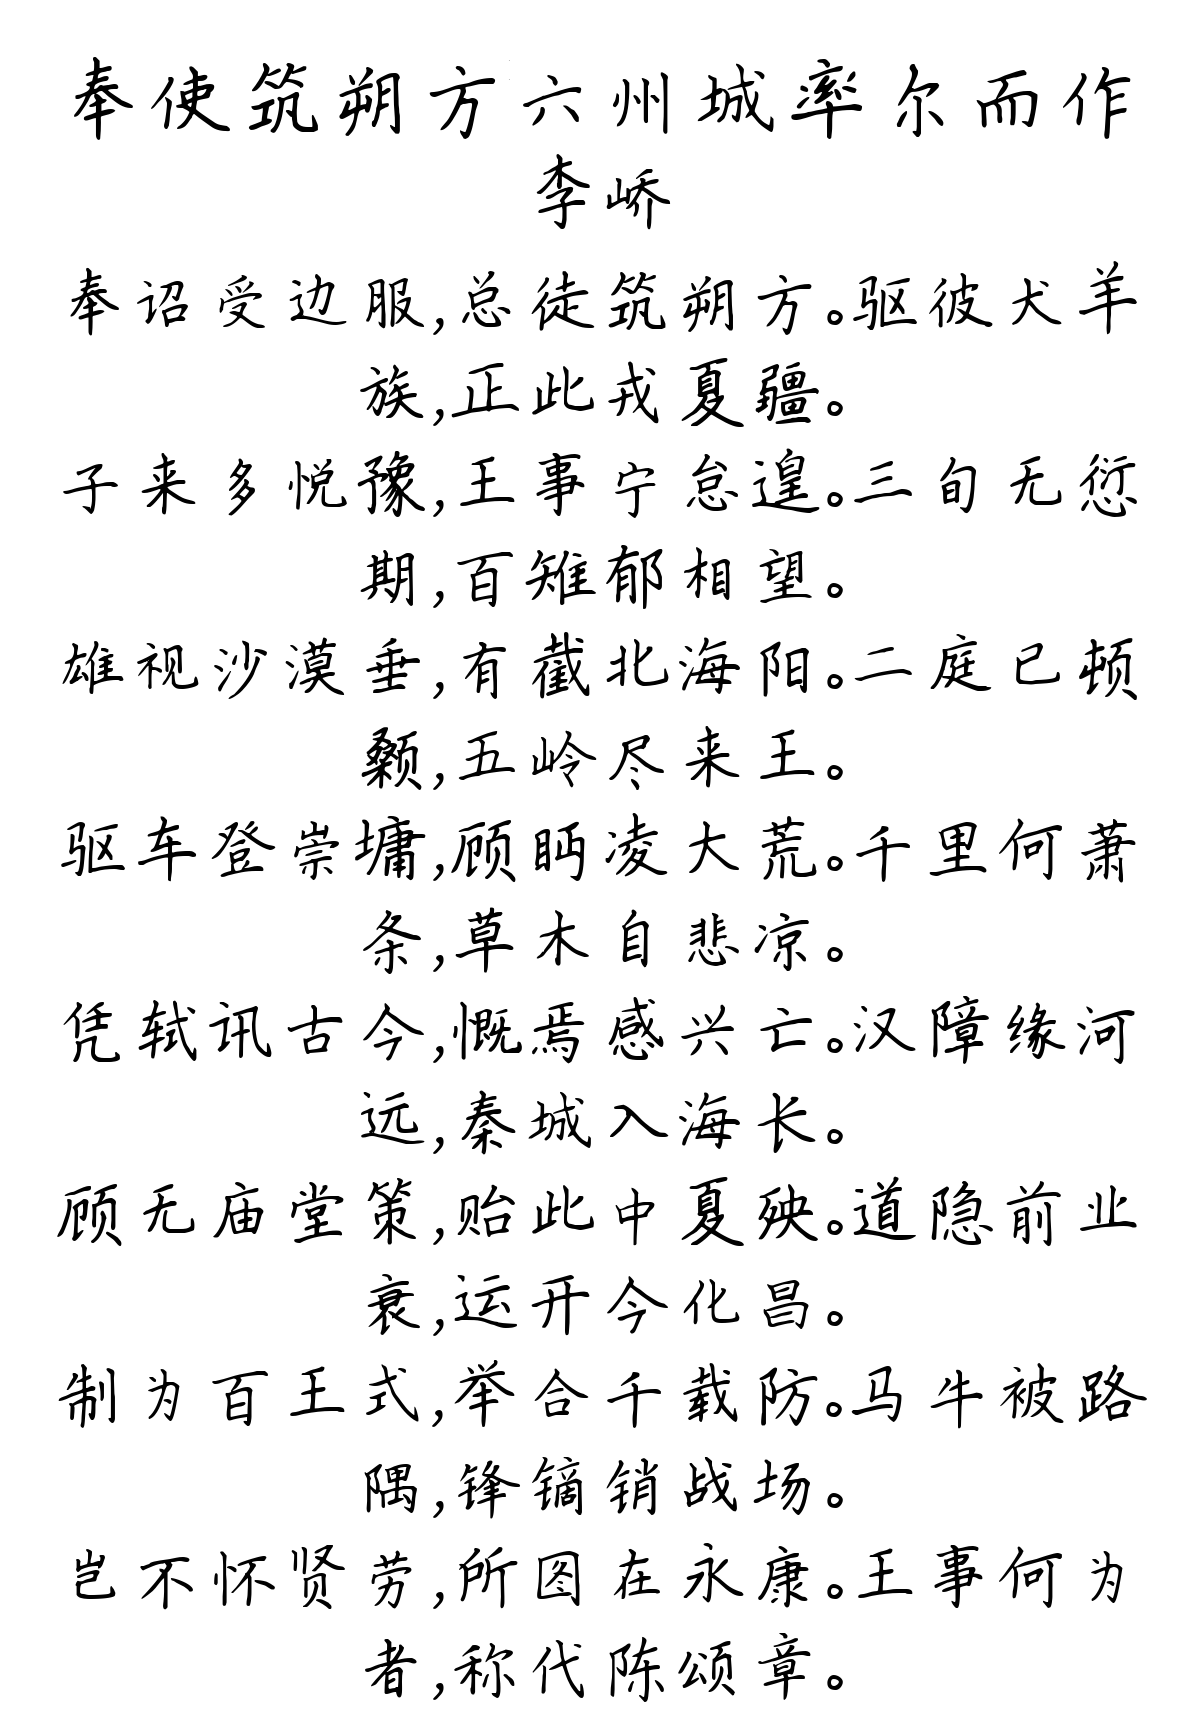 奉使筑朔方六州城率尔而作
李峤
奉诏受边服,总徒筑朔方。驱彼犬羊
族,正此戎夏疆。
子来多悦豫,王事宁怠遑。三旬无愆
期,百雉郁相望。
雄视沙漠垂,有截北海阳。二庭已顿
颡,五岭尽来王。
驱车登崇墉,顾眄凌大荒。千里何萧
条,草木自悲凉。
凭轼讯古今,慨焉感兴亡。汉障缘河
远,秦城入海长。
顾无庙堂策,贻此中夏殃。道隐前业
衰,运开今化昌。
制为百王式,举合千载防。马牛被路
隅,锋镝销战场。
岂不怀贤劳,所图在永康。王事何为
者,称代陈颂章。